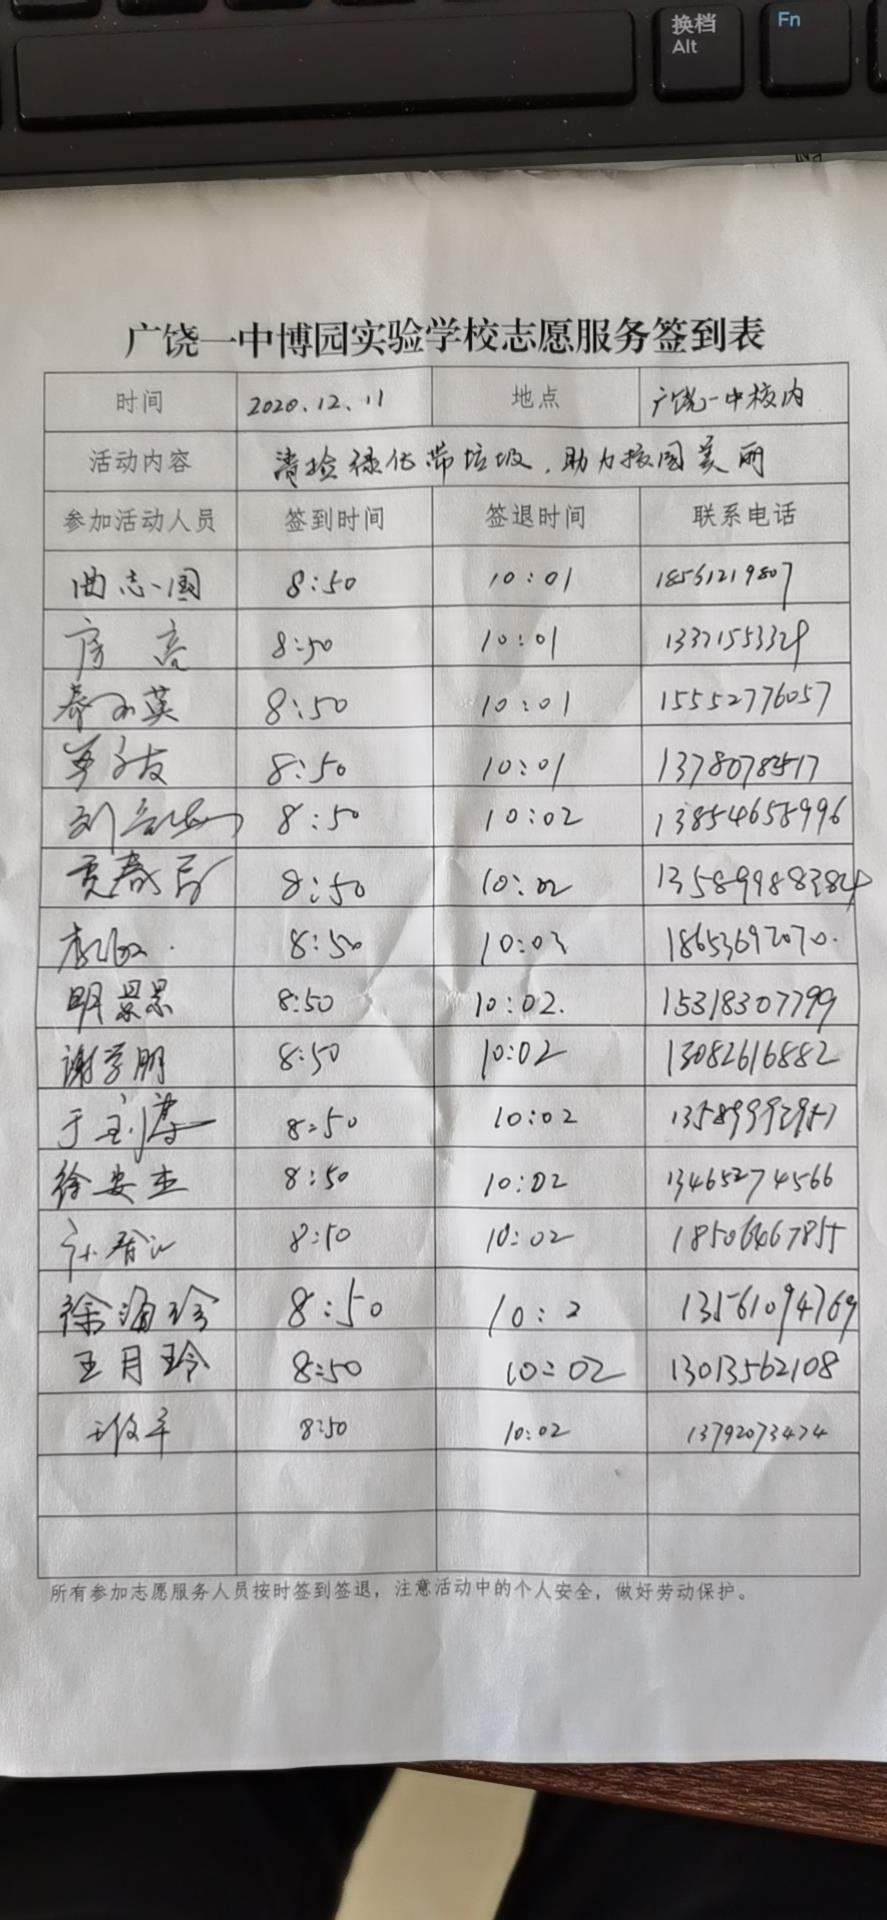 换档 Fn
Alt
广饶一中博园实验学校志愿服务签到表
时间 2020.12.11 地点 广饶一中校内
活动内容 清捡绿化带垃圾，助力校园美丽
参加活动人员 签到时间 签退时间 联系电话
曲志国 8:50 10:01 18561219807
房亮 8:50 10:01
8:50 10:01 15552776057
8:50 10:01
8:50 10:02 13854658996
8:50 10:02 13589988384
8:50 10:03 18653692070.
明景景 8:50 10:02. 15318307799
谢学朋 8:50 10:02 13082616882
8:50 10:02
徐安杰 8:50 10:02 13465274566
8:50 10:02
徐海珍 8:50 10:2 13561094769
王月玲 8:50 10:02 13013562108
8:50 10:02 13792073474
所有参加志愿服务人员按时签到签退，注意活动中的个人安全，做好劳动保护。